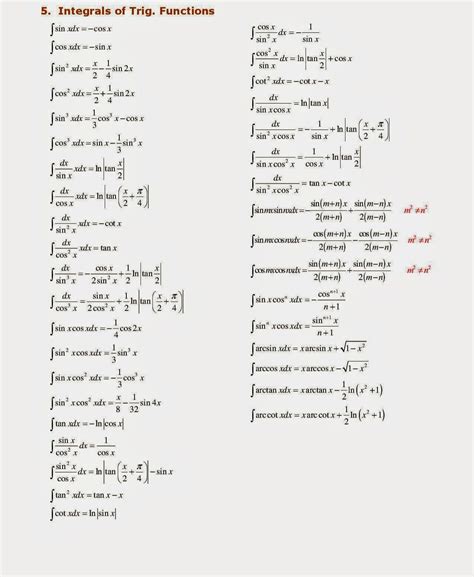 5. Integrals of Trig. Functions
∫sin xdx = −cos x
∫cos xdx = −sin x
∫sin² xdx = x/2 − 1/4 sin 2x
∫cos² xdx = x/2 + 1/4 sin 2x
∫sin³ xdx = 1/3 cos³ x − cos x
∫cos³ xdx = sin x − 1/3 sin³ x
∫dx/sin x xdx = ln|tan x/2|
∫dx/cos x xdx = ln|tan(x/2 + π/4)|
∫dx/sin² x xdx = −cot x
∫dx/cos² x xdx = tan x
∫dx/sin³ x = −cos x/2sin² x + 1/2 ln|tan x/2|
∫dx/cos³ x = sin x/2cos² x + 1/2 ln|tan(x/2 + π/4)|
∫sin x cos xdx = −1/4 cos 2x
∫sin² x cos xdx = 1/3 sin³ x
∫sin x cos² xdx = −1/3 cos³ x
∫sin² x cos² xdx = x/8 − 1/32 sin 4x
∫tan xdx = −ln|cos x|
∫sin x/cos² x dx = 1/cos x
∫sin² x/cos x dx = ln|tan(x/2 + π/4)| − sin x
∫tan² xdx = tan x − x
∫cot xdx = ln|sin x|
∫cos x/sin² x dx = −1/sin x
∫cos² x/sin x dx = ln|tan x/2| + cos x
∫cot² xdx = −cot x − x
∫dx/sin x cos x = ln|tan x|
∫dx/sin² x cos x = −1/sin x + ln|tan(x/2 + π/4)|
∫dx/sin x cos² x = 1/cos x + ln|tan x/2|
∫dx/sin² x cos² x = tan x − cot x
∫sin mx sin nxdx = −sin(m+n)x/2(m+n) + sin(m−n)x/2(m−n) m² ≠ n²
∫sin mx cos nxdx = −cos(m+n)x/2(m+n) − cos(m−n)x/2(m−n) m² ≠ n²
∫cos mx cos nxdx = sin(m+n)x/2(m+n) + sin(m−n)x/2(m−n) m² ≠ n²
∫sin x cosⁿ xdx = −cosⁿ⁺¹ x/n+1
∫sinⁿ x cos xdx = sinⁿ⁺¹ x/n+1
∫arcsin xdx = x arcsin x + √1−x²
∫arccos xdx = x arccos x − √1−x²
∫arctan xdx = x arctan x − 1/2 ln(x² + 1)
∫arc cot xdx = x arc cot x + 1/2 ln(x² + 1)